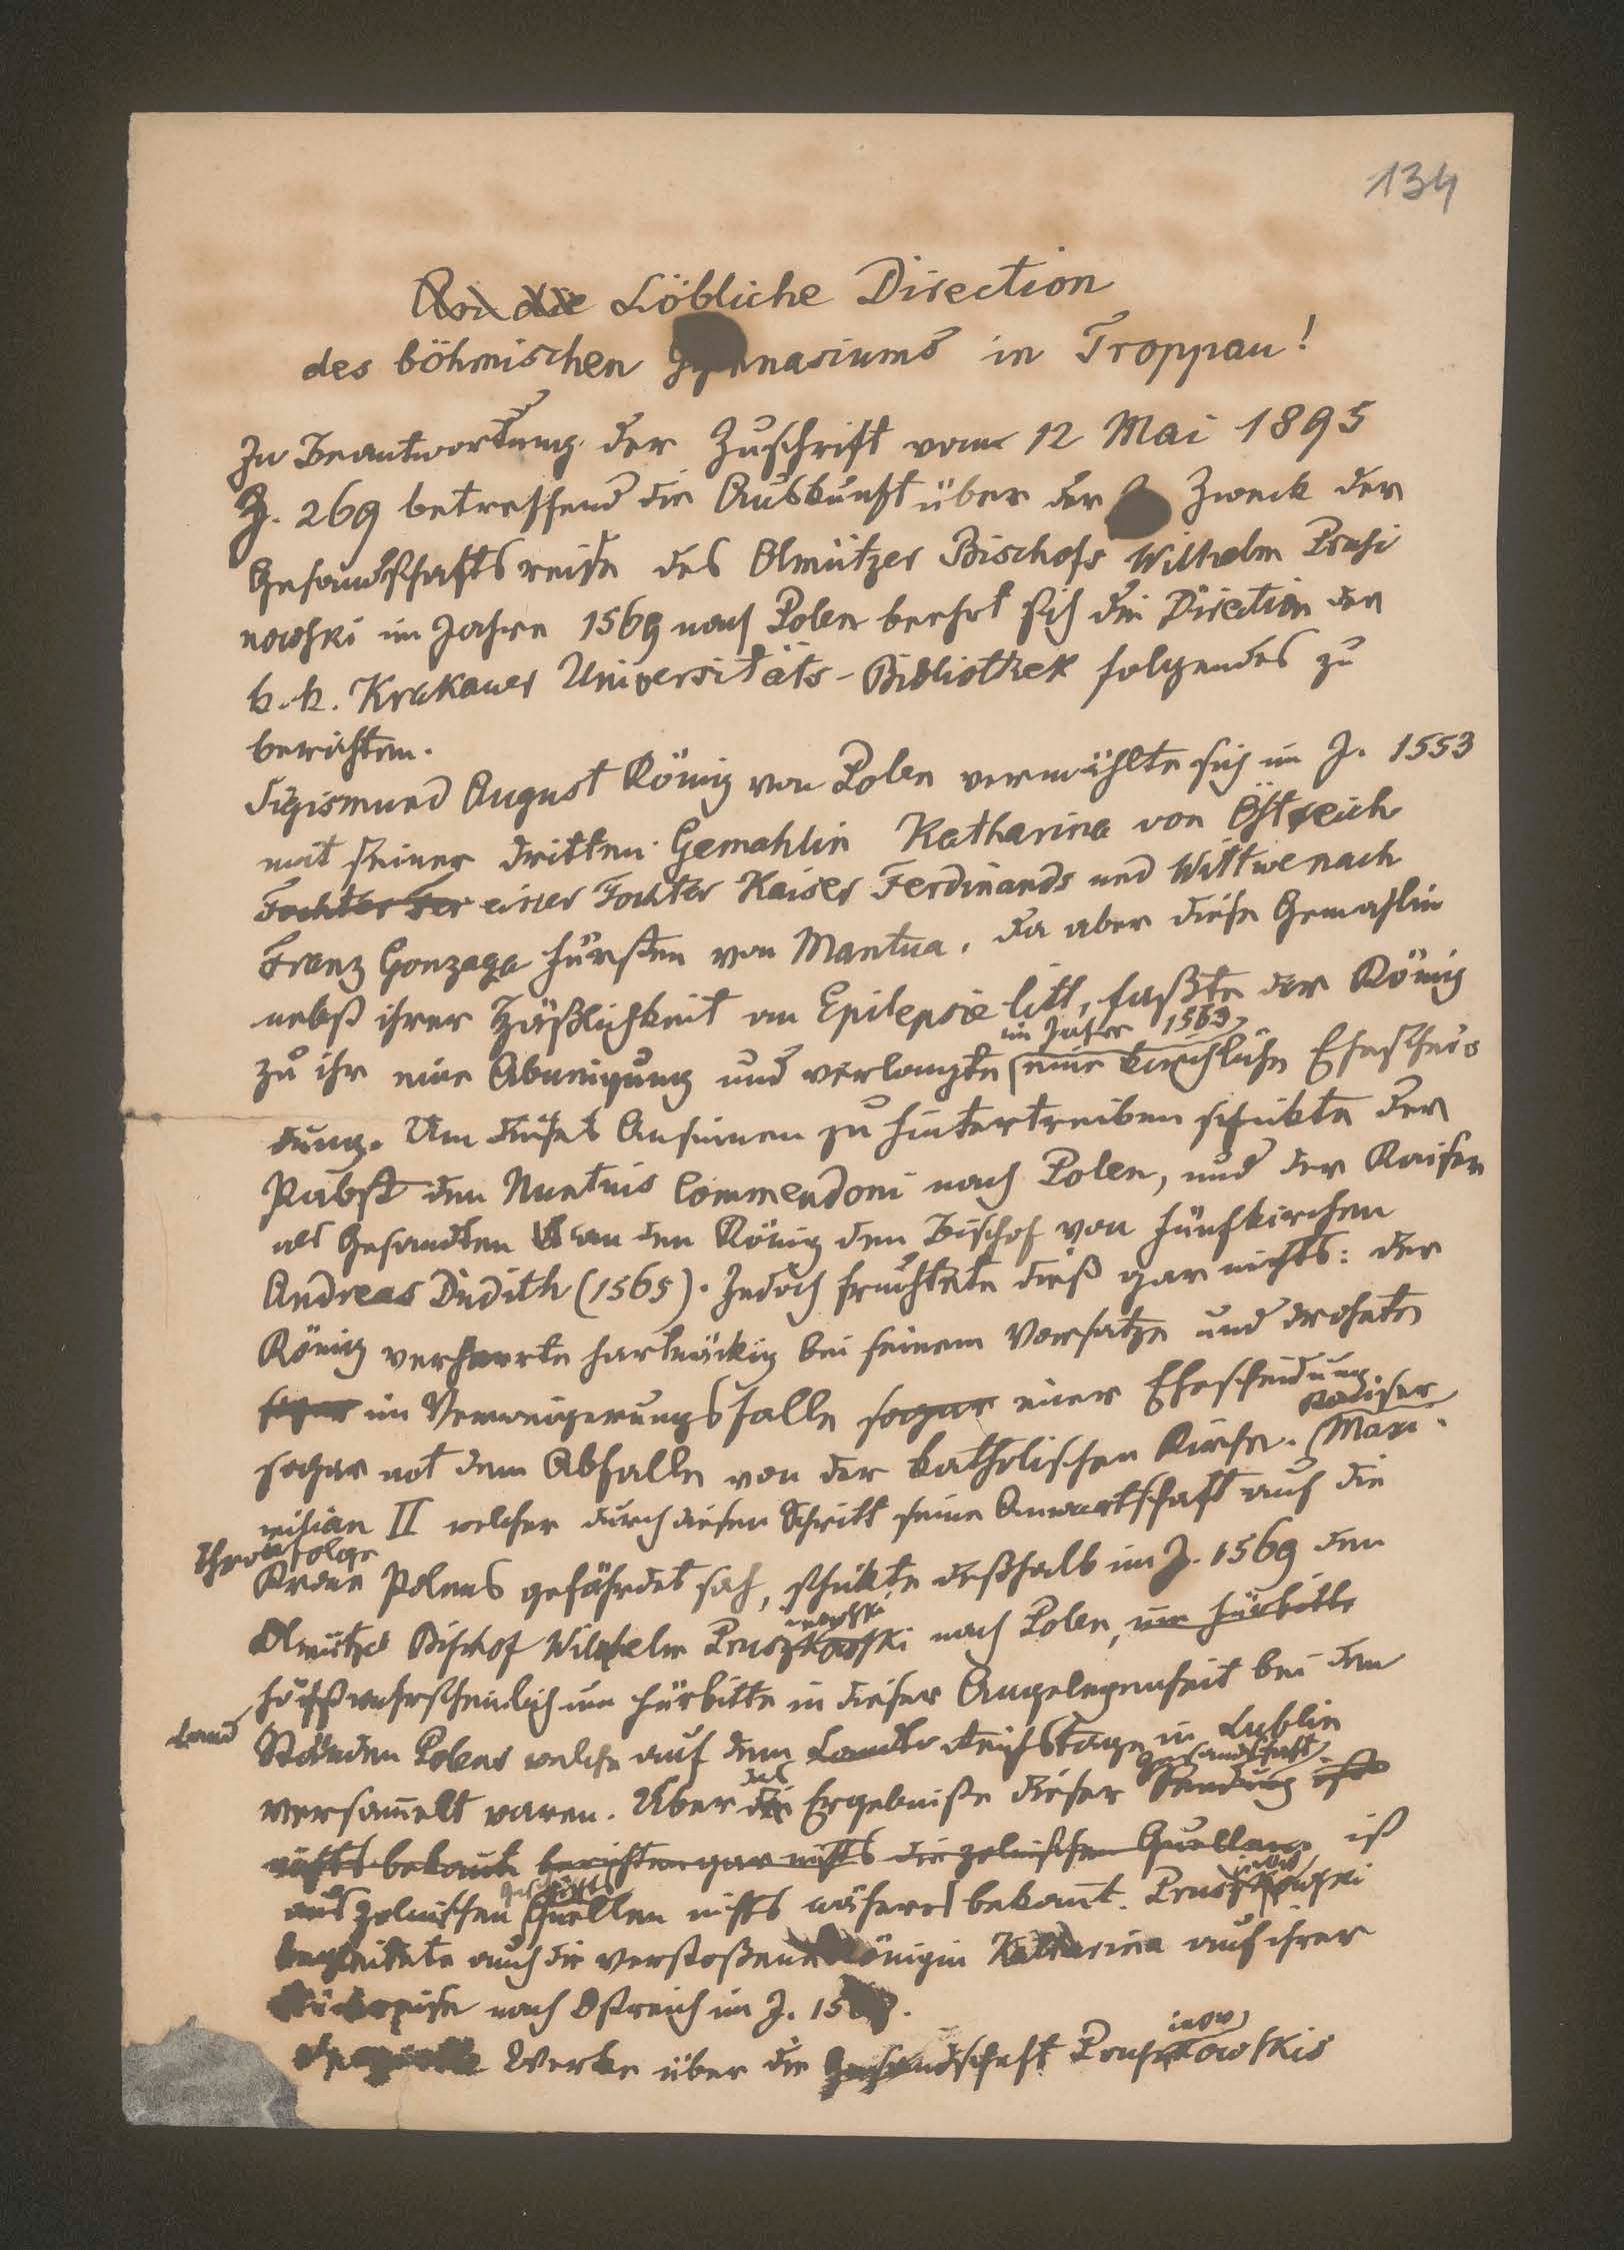 134
An die Löbliche Direction
des böhmischen Gymnasiums in Troppau!
In Beantwortung der Zuschrift vom 12 Mai 1895
Z. 269 betreffend die Auskunft über der Zweck der
Gesandtschaftsreise des Olmützer Bischofs Wilhelm Prusi
nowski im Jahre 1569 nach Polen beehrt sich die Direction der
k. k. Krakauer Universitäts-Bibliothek folgendes zu
berichten.
Sigismund August König von Polen vermählte sich im J. 1553
mit seiner dritten Gemahlin Katharina von Östreich
Tochter der einer Tochter Kaiser Ferdinands und Wittwe nach
Franz Gonzaga Fürsten von Mantua. Da aber diese Gemahlin
nebst ihrer Häßlichkeit an Epilepsie litt, faßte der König
im Jahre 1563
zu ihr eine Abneigung und verlangte eine kirchliche Eheschei-
dung. Um dieses Ansinnen zu hintertreiben schickte der
Pabst den Nuntius Commendoni nach Polen, und der Kaiser
als Gesandten an den König den Bischof von Fünfkirchen
Andreas Dudith (1565). Jedoch fruchtete dieß gar nichts: der
König verharrte hartnäckig bei seinem Vorsatze und drohete
sogar im Verweigerungsfalle sogar einer Ehescheidung
Kaiser
sogar mit dem Abfalle von der katholischen Kirche. Maxi-
milian II welcher durch diesen Schritt seine Anwartschaft auf die
Thronfolge
Krone Polens gefährdet sah, schickte deßhalb im J. 1569 den
inowski
Olmützer Bischof Wilhelm Pruszkowski nach Polen, um Fürbitte
höchstwahrscheinlich um Fürbitte in dieser Angelegenheit bei den
Land
Ständen Polens welche auf dem Landes Reichstage in Lublin
das Gesandtschaft
versammelt waren. Über die Ergebniße dieser Sendung ist
nichts bekannt berichten gar nichts die polnischen Quellen ist
Geschichts inow
aus polnischen Quellen nichts näheres bekannt. Pruszkowski
begleitete auch die verstoßene Königin Katharina auf ihrer
Rückreise nach Östreich im J. 15
inow
Specielle Werke über die Gesandschaft Pruszkowskis